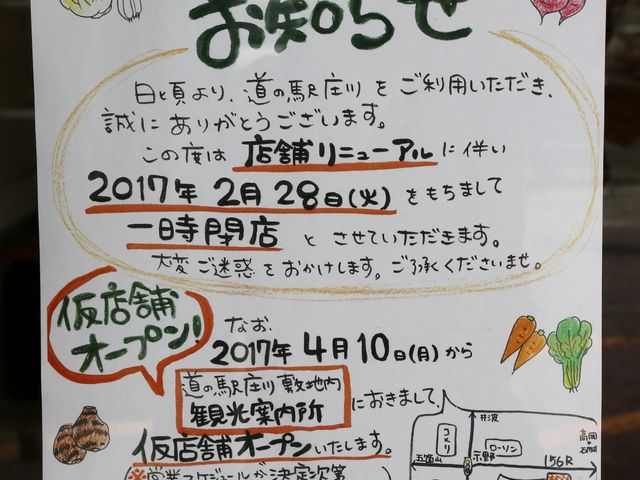 お知らせ
日頃より、道の駅庄川をご利用いただき、
誠にありがとうございます。
この度は店舗リニューアルに伴い
2017年2月28日(火)をもちまして
一時閉店とさせていただきます。
大変ご迷惑をおかけします。ご了承くださいませ。
仮店舗
オープン!
なお、
2017年4月10日(月)から
道の駅庄川敷地内
観光案内所
におきまして
仮店舗オープンいたします。
※営業スケジュールが決定次第
井波
コメリ
ローソン
高岡
五箇山
示野
156R